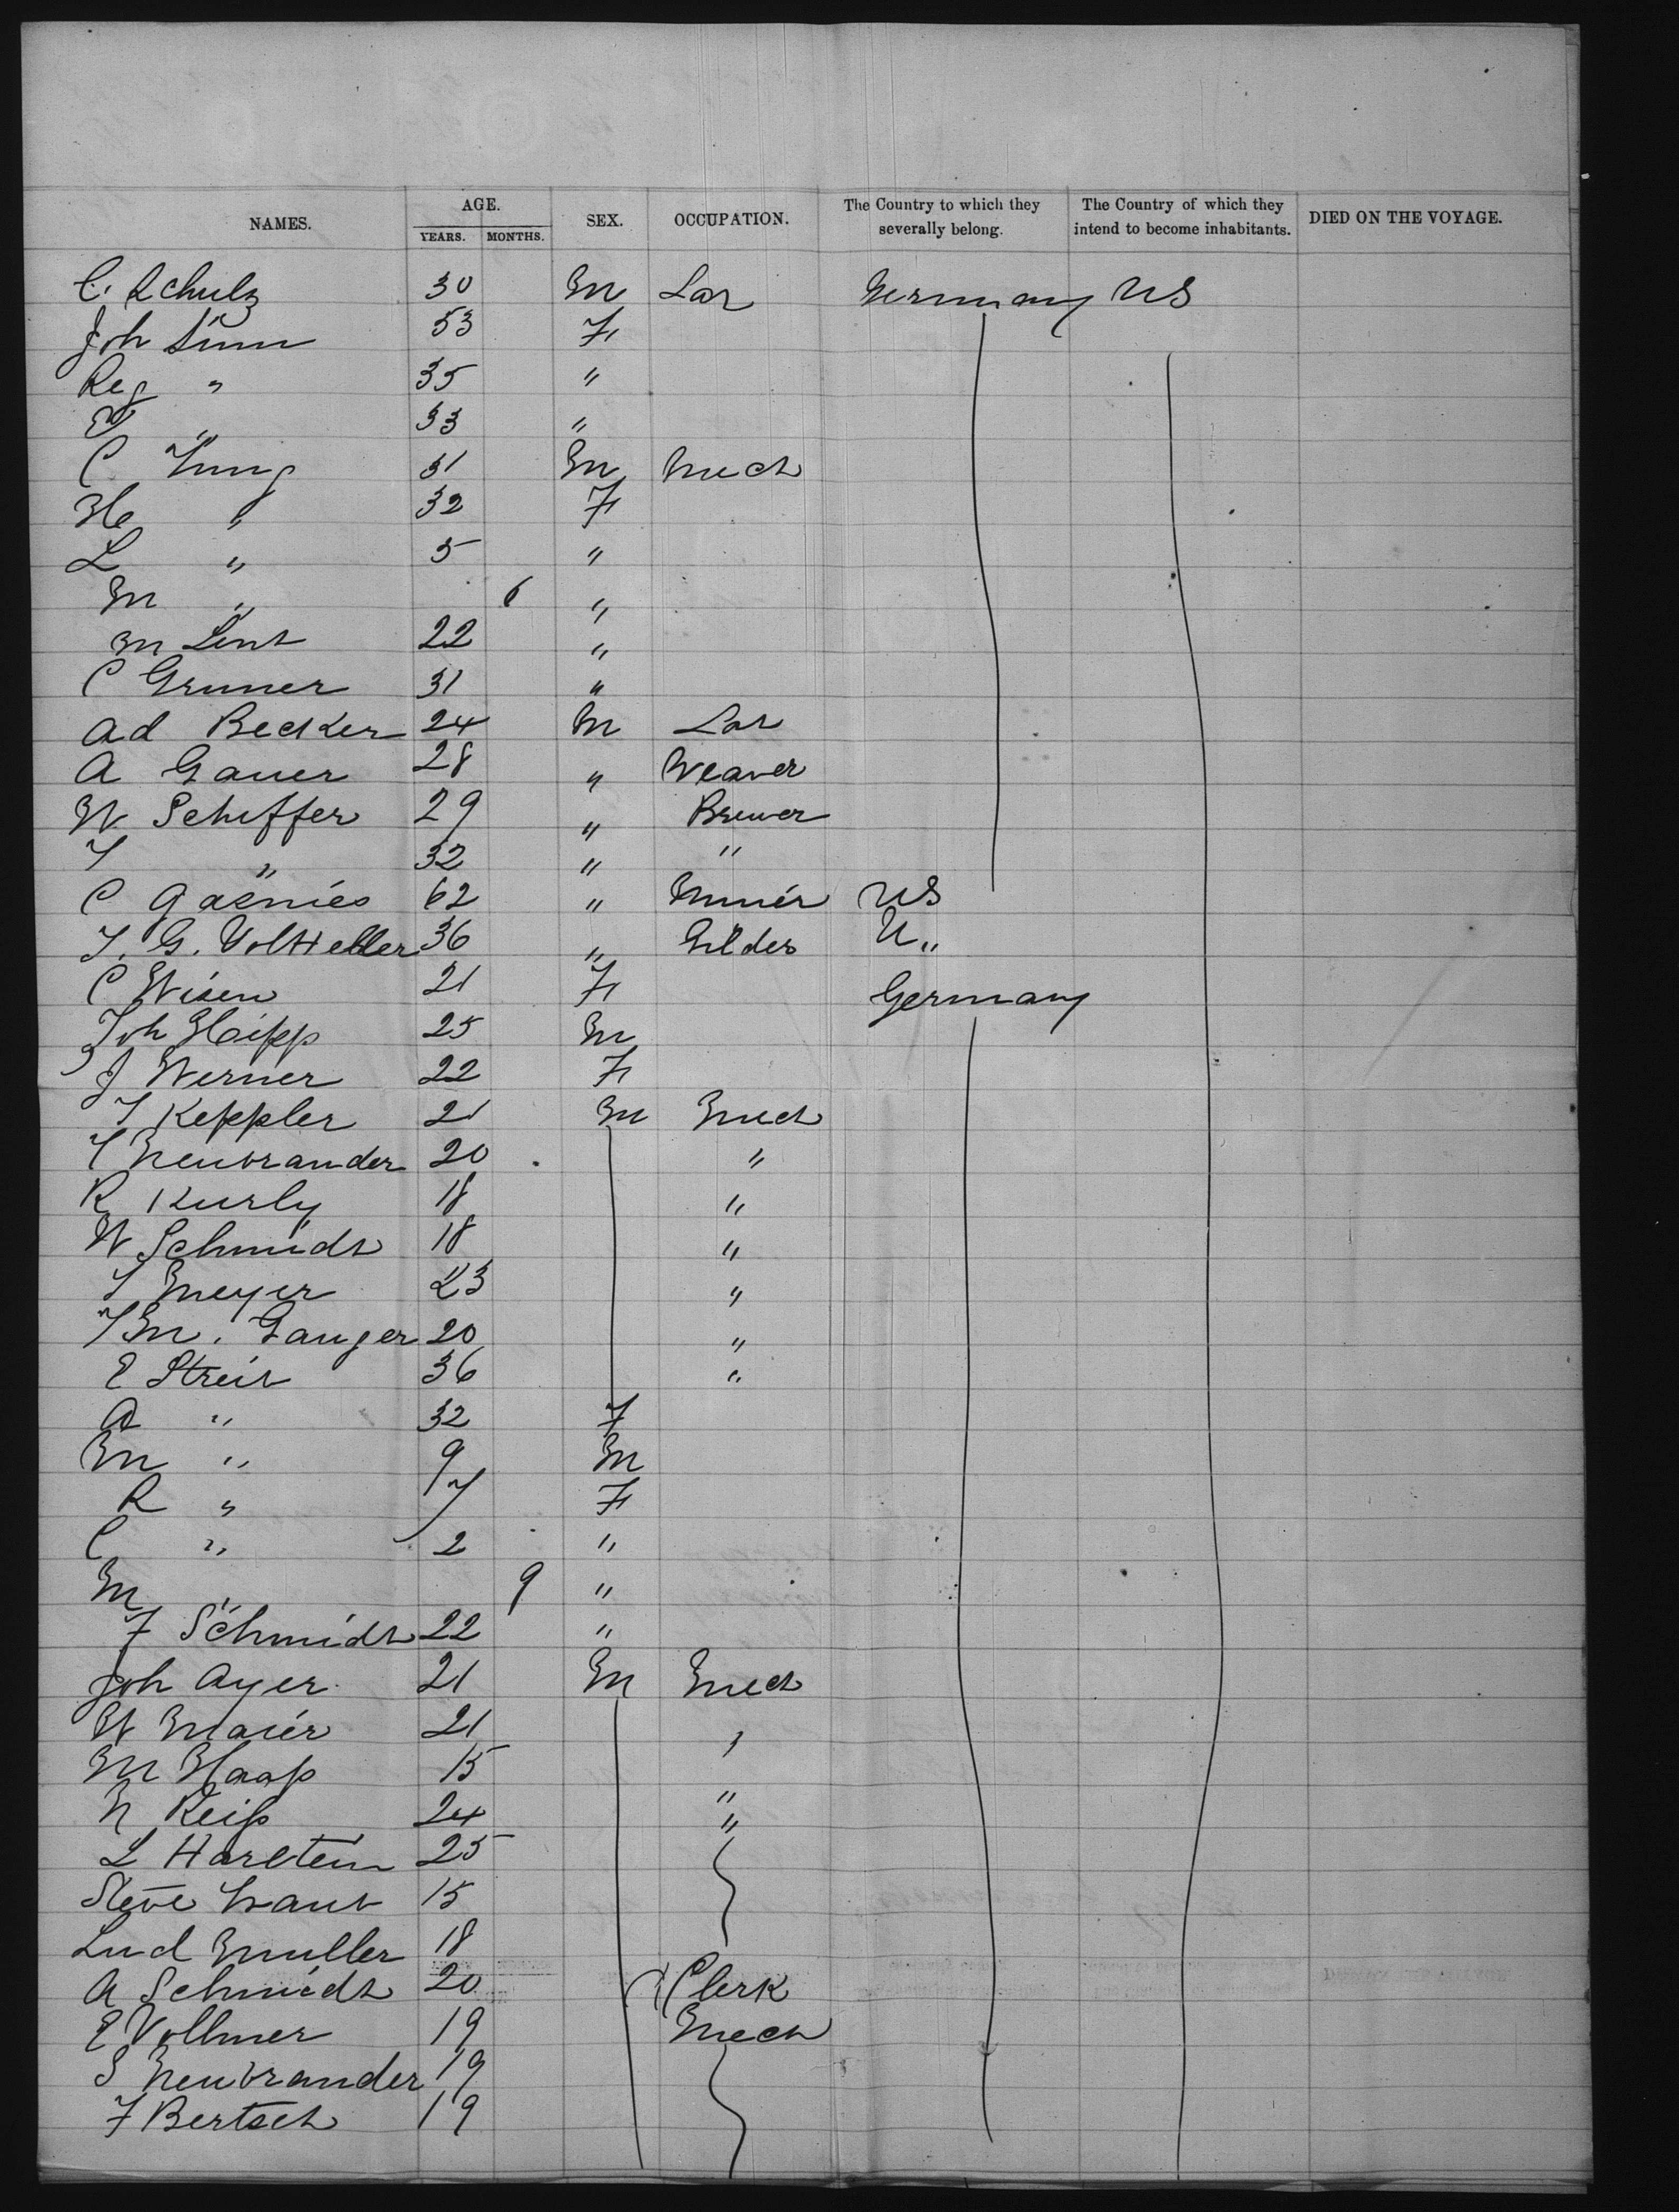 NAMES. AGE. YEARS. MONTHS. SEX. OCCUPATION. The Country to which they severally belong. The Country of which they intend to become inhabitants. DIED ON THE VOYAGE.
C. Schulz 30 M Lar Germany US
Joh Sinn 53 F
Reg " 35 "
" 33 "
C Jung 31 M Mech
He " 32 F
L " 5 "
M " 6 "
M Lent 22 "
C Gruner 31 "
Ad Becker 24 M Lar
A Gauer 28 " Weaver
W Scheffer 29 " Brewer
J " 32 " "
C Gasnies 62 " Miner US
J. G. Voltteller 36 " Gilder U "
C Wisen 21 F Germany
Joh Hipp 25 M
J Werner 22 F
J Keppler 21 M Mech
J Neubrander 20 "
R Kurly 18 "
W Schmidt 18 "
J Meyer 23 "
J M. Gauger 20 "
E Streit 36 "
A " 32 F
M " 9 M
R " 7 F
C " 2 "
M " 9 "
F Schmidt 22 "
Joh Ayer 21 M Mech
W Maier 21 "
M Haap 15 "
N Reiß 24 "
L Harltein 25
Steve Traut 15
Lud Muller 18
A Schmidt 20 Clerk
E Vollmer 19 Mech
S Neubrander 19
F Bertsch 19